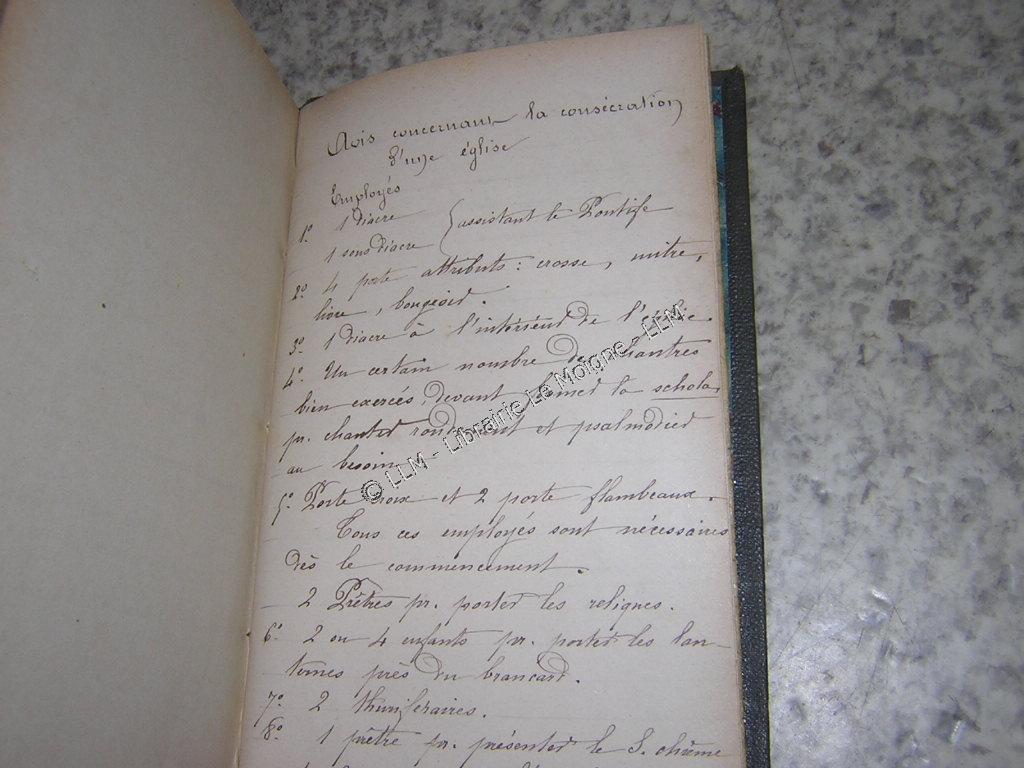 Avis concernant la consécration
d'une église
Employés
1º 1 diacre
1 sous diacre } assistant le Pontife
2º 4 porte attributs : crosse, mitre,
livre, bougeoir.
3º 1 diacre à l'intérieur de l'église.
4º Un certain nombre de chantres
bien exercés, devant former la schola,
pr. chanter rondement et psalmodier
au besoin
5º Porte croix et 2 porte flambeaux.
Tous ces employés sont nécessaires
dès le commencement.
2 Prêtres pr. porter les reliques.
6º 2 ou 4 enfants pr. porter les lan-
ternes près du brancard.
7º 2 thuriféraires.
8º 1 prêtre pr. présenter le S. chrême
© LLM - Librairie Le Moigne - LLM